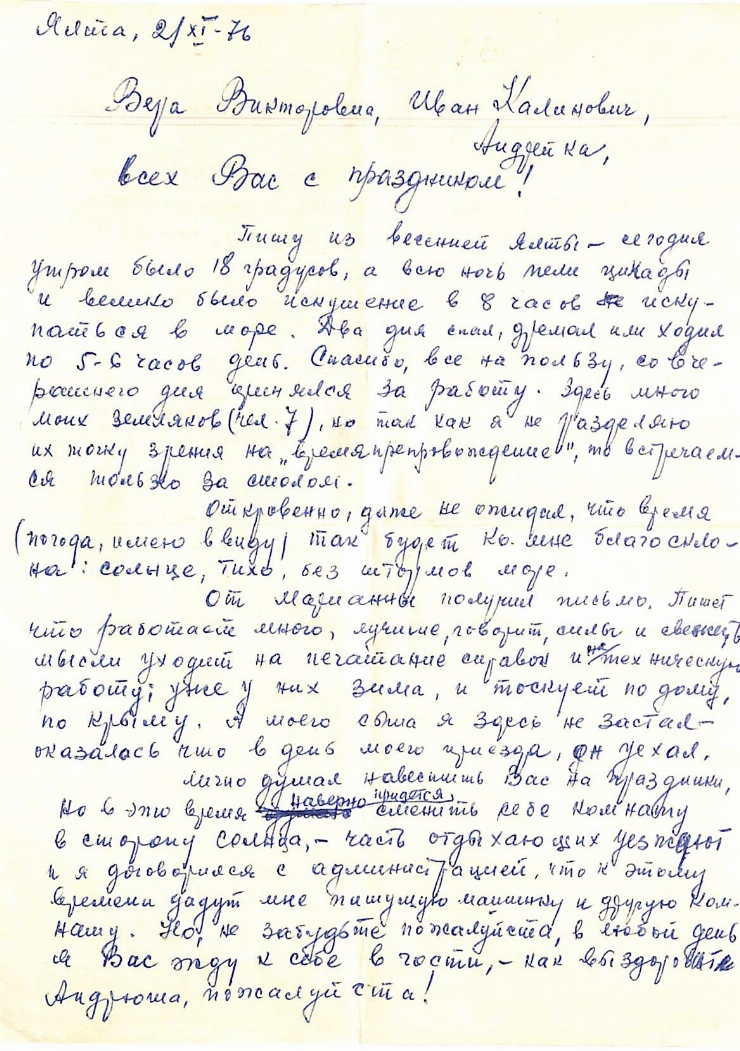 Ялта, 2/XI-76
Вера Викторовна, Иван Калинович,
Андрейка,
всех Вас с праздником!
Пишу из весенней Ялты – сегодня
утром было 18 градусов, а всю ночь пели цикады
и велико было искушение в 8 часов иску-
паться в море. Два дня спал, дремал или ходил
по 5-6 часов день. Спасибо, все на пользу, со вче-
рашнего дня принялся за работу. Здесь много
моих земляков (чел. 7), но так как я не разделяю
их точку зрения на „времяпрепровождение", то встречаем-
ся только за столом.
Откровенно, даже не ожидал, что время
(погода, имею ввиду) так будет ко мне благоскло-
на: солнце, тихо, без штормов море.
От Марианны получил письмо. Пишет
что работает много, лучшие, говорит, силы и свежесть
мысли уходит на печатание справок и на техническую
работу; уже у них зима, и тоскует по дому,
по Крыму. А моего сына я здесь не застал –
оказалось что в день моего приезда, он уехал.
Лично думал навестить Вас на праздники,
но в это время наверно придется сменить себе комнату
в сторону солнца, – часть отдыхающих уезжают
и я договорился с администрацией, что к этому
времени дадут мне пишущую машинку и другую ком-
нату. Но, не забудьте пожалуйста, в любой день
я Вас жду к себе в гости, – как выздоровит
Андрюша, пожалуйста!